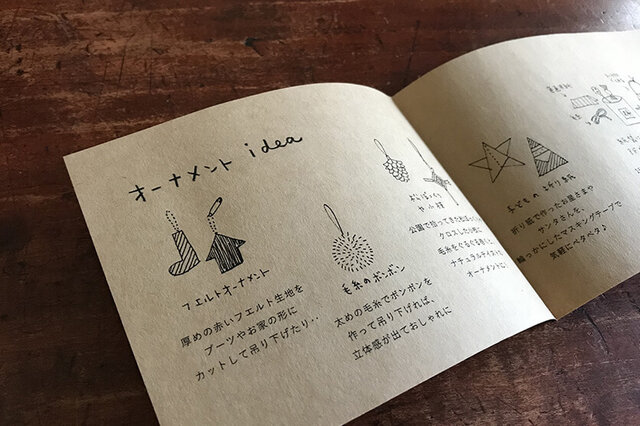 オーナメント idea
フエルトオーナメント
厚めの赤いフエルト生地を
ブーツやお家の形に
カットして吊り下げたり‥
毛糸のポンポン
太めの毛糸でポンポンを
作って吊り下げれば、
立体感が出ておしゃれに
公園で拾ってきた
クロスしたり
毛糸をぐるぐる巻い
ナチュラルテイスト
オーナメントに
子どもの折り紙
折り紙で作ったお星さまや
サンタさんを、
輪っかにしたマスキングテープで
気軽にペタペタ♪